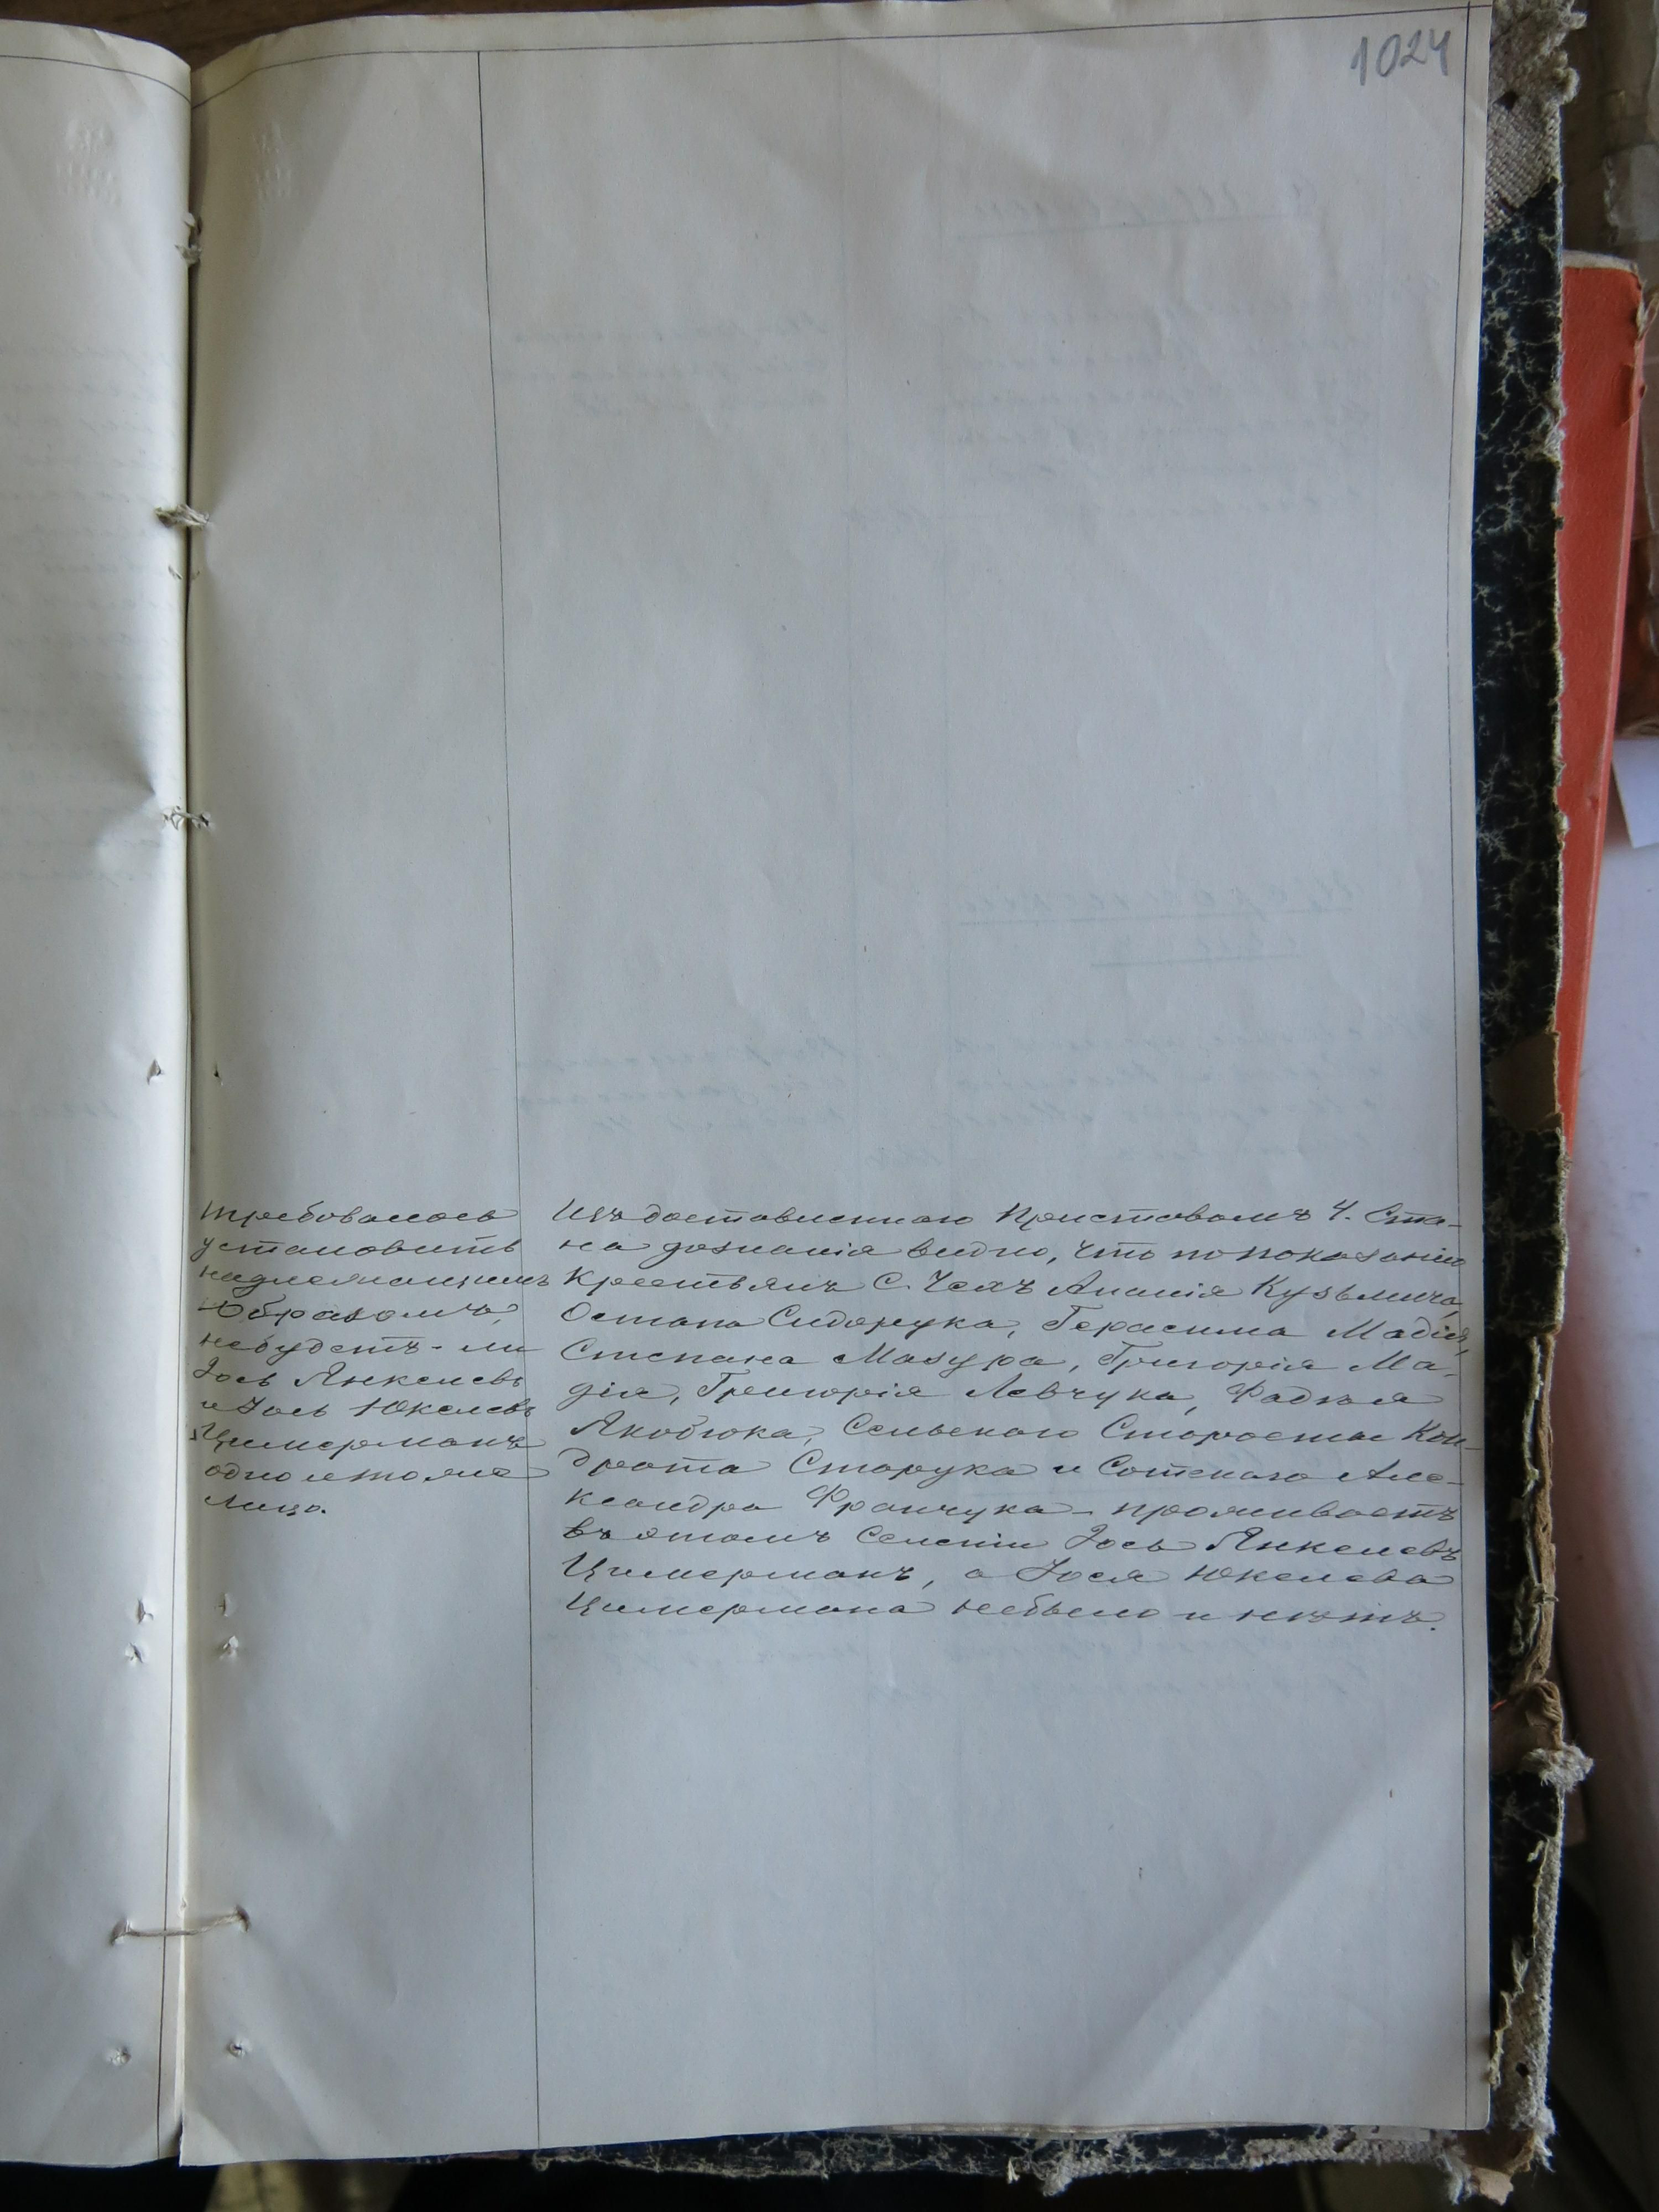 1024
требовалось
установить
надлежащимъ
Образомъ,
небудетъ-ли
Іось Янкелевъ
и Іось Юкелевъ
Цимерманъ
одно и тоже
лицо.
Изъ доставленнаго Приставомъ 4. Ста-
на дознанія видно, что по показанію
Крестьянъ С. Чехъ Ананія Кузьмича,
Остапа Сидорука, Герасима Мадія,
Степана Мазура, Григорія Ма-
дія, Григорія Левчука, Фадѣя
Якобюка, Сельскаго Старосты Кон-
драта Старука и Сотскаго Але-
ксандра Франчука - проживаетъ
въ этомъ Селеніи Іось Янкелевъ
Цимерманъ, а Іося Юкелева
Цимермана небыло и нѣтъ.